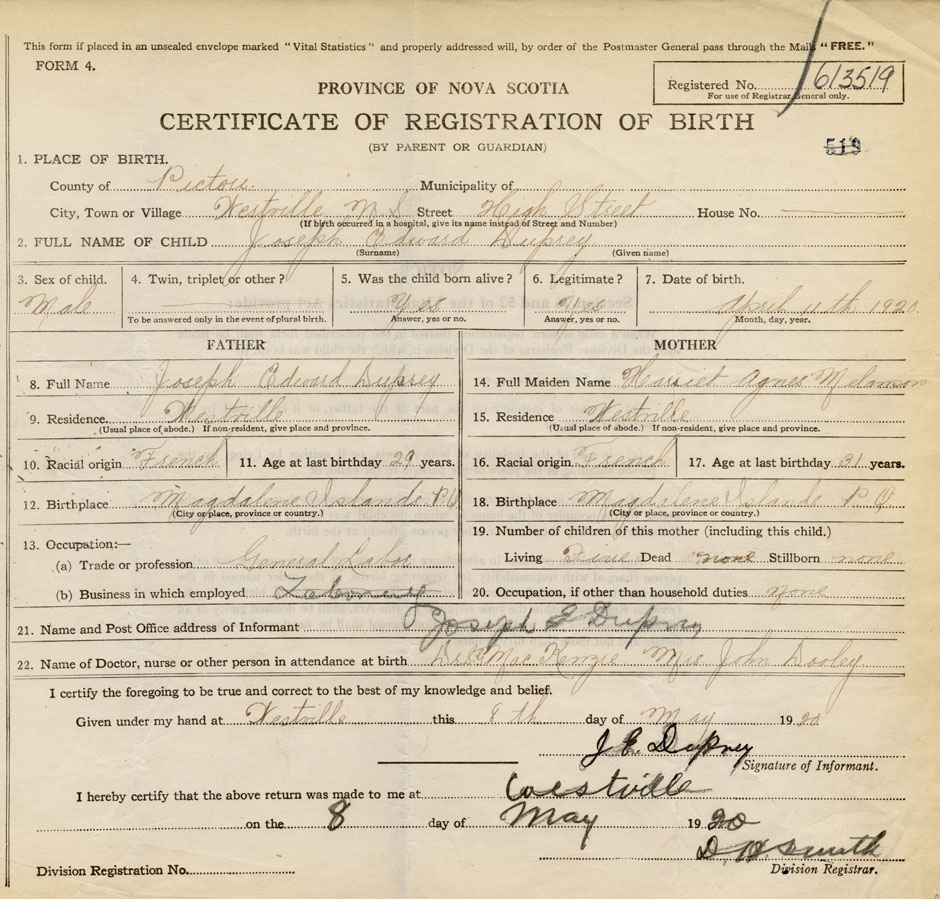 This form if placed in an unsealed envelope marked "Vital Statistics" and properly addressed will, by order of the Postmaster General pass through the Mails "FREE."
FORM 4.
PROVINCE OF NOVA SCOTIA
Registered No. 613519
For use of Registrar General only.
CERTIFICATE OF REGISTRATION OF BIRTH
(BY PARENT OR GUARDIAN)
519
1. PLACE OF BIRTH.
County of Pictou Municipality of
City, Town or Village Westville N S Street High Street House No.
(If birth occurred in a hospital, give its name instead of Street and Number)
2. FULL NAME OF CHILD Joseph Edward Duprey
(Surname) (Given name)
3. Sex of child. 4. Twin, triplet or other? 5. Was the child born alive? 6. Legitimate? 7. Date of birth.
Male Yes Yes April 11th 1920
To be answered only in the event of plural birth. Answer, yes or no. Answer, yes or no. Month, day, year.
FATHER MOTHER
8. Full Name Joseph Edward Duprey 14. Full Maiden Name Harriet Agnes Melanson
9. Residence. Westville 15. Residence Westville
(Usual place of abode.) If non-resident, give place and province. (Usual place of abode.) If non-resident, give place and province.
10. Racial origin French 11. Age at last birthday 29 years. 16. Racial origin French 17. Age at last birthday 31 years.
12. Birthplace Magdalene Islands P Q 18. Birthplace Magdalene Islands P Q
(City or place, province or country.) (City or place, province or country.)
13. Occupation:— 19. Number of children of this mother (including this child.)
(a) Trade or profession General Labor Living Five Dead none Stillborn none
(b) Business in which employed 20. Occupation, if other than household duties none
21. Name and Post Office address of Informant Joseph E Duprey
22. Name of Doctor, nurse or other person in attendance at birth MacKenzie Mrs John Dooley
I certify the foregoing to be true and correct to the best of my knowledge and belief.
Given under my hand at Westville this 8th day of May 1920
J. E. Duprey
Signature of Informant.
I hereby certify that the above return was made to me at Westville
on the 8 day of May 1920
Smith
Division Registration No. Division Registrar.